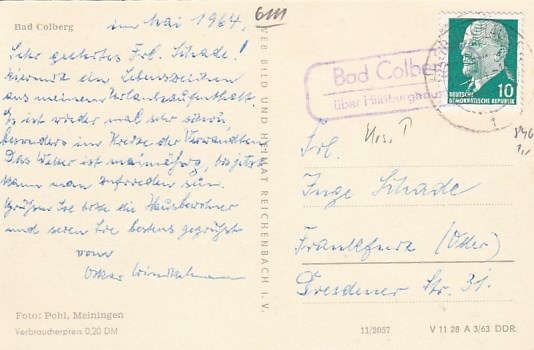 Bad Colberg
im Mai 1964.
Sehr geehrtes Frl. Schade!
Hiermit ein Lebenszeichen
aus meinem Urlaubsaufenthalt.
Es ist wieder mal sehr schön,
besonders im Kreise der Verwandten.
Das Wetter ist maimäßig, bis jetzt
kann man zufrieden sein.
Grüßen Sie bitte die Hausbewohner
und seien Sie bestens gegrüßt
vom
Oskar
Foto: Pohl, Meiningen
Verbraucherpreis 0,20 DM
VEB BILD UND HEIMAT REICHENBACH I. V.
Bad Colberg
über Hildburghausen
10
DEUTSCHE
DEMOKRATISCHE REPUBLIK
Frl.
Inge Schade
Frankfurt (Oder)
Dresdener Str. 31.
11/2057 V 11 28 A 3/63 DDR